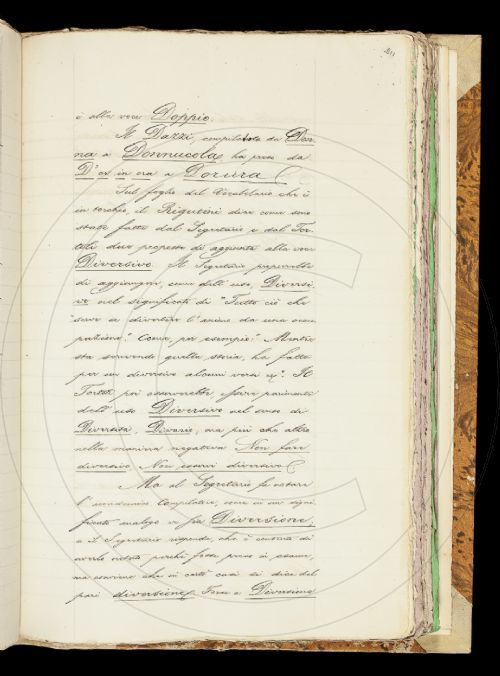 è alla voce Doppio.
Il Dazzi, compilatore da Don
na a Donnucola, ha preso da
D' or in ora a Dorura
Sul foglio del Vocabolario che è
in torchio, il Rigutini dice come sono
state fatte dal Segretario e dal Tor
telli due proposte di aggiunta alla voce
Diversivo. Il Segretario proporrebbe
di aggiungere, come dell' uso, Diversi
vo nel significato di "Tutto ciò che
"serve a divertire l' animo da una occu
pazione." Come, per esempio: "Mentre
sta scrivendo quella storia, ha fatto
per un diversivo alcuni versi". Il
Tortoli poi osserverebbe, essere parimente
dell' uso Diversivo nel senso di
Diversità, Divario, ma più che altro
nella maniera negativa Non fare
diversivo, Non esservi diversivo
Ma al Segretario fa notare
l' accademico Compilatore, come in un signi
ficato analogo vi sia Diversione;
e il Segretario risponde, che è contento di
averlo notato perchè fosse preso in esame,
ma conviene che in certi casi si dice del
pari diversione. Tra a Diversione